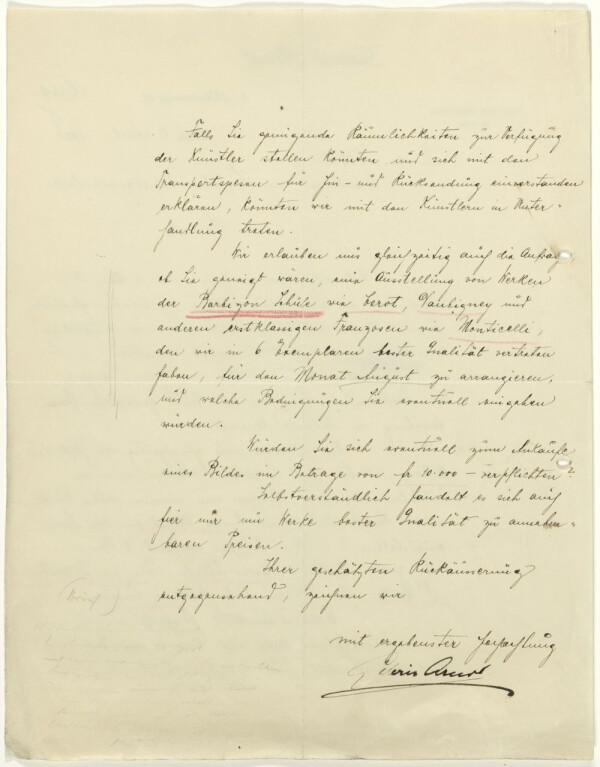 Falls Sie genügende Räumlichkeiten zur Verfügung
der Künstler stellen könnten und sich mit den
Transportspesen für Hin- und Rücksendung einverstanden
erklären, könnten wir mit den Künstlern in Unter-
handlung treten.
Wir erlauben uns gleichzeitig auch die Anfrage
ob Sie geneigt wären, eine Ausstellung von Werken
der Barbizon Schule wie Corot, Daubigney und
anderen erstklassigen Franzosen wie Monticelli,
den wir in 6 Exemplaren bester Qualität vertreten
haben, für den Monat August zu arrangieren,
und welche Bedingungen Sie eventuell eingehen
würden.
Würden Sie sich eventuell zum Ankaufe
eines Bildes im Betrage von fr 10.000 - verpflichten?
Selbstverständlich handelt es sich auch
hier nur um Werke bester Qualität zu annehm-
baren Preisen.
Ihrer geschätzten Rückäusserung
entgegensehend, zeichnen wir
mit ergebenster Hochachtung
Arnot